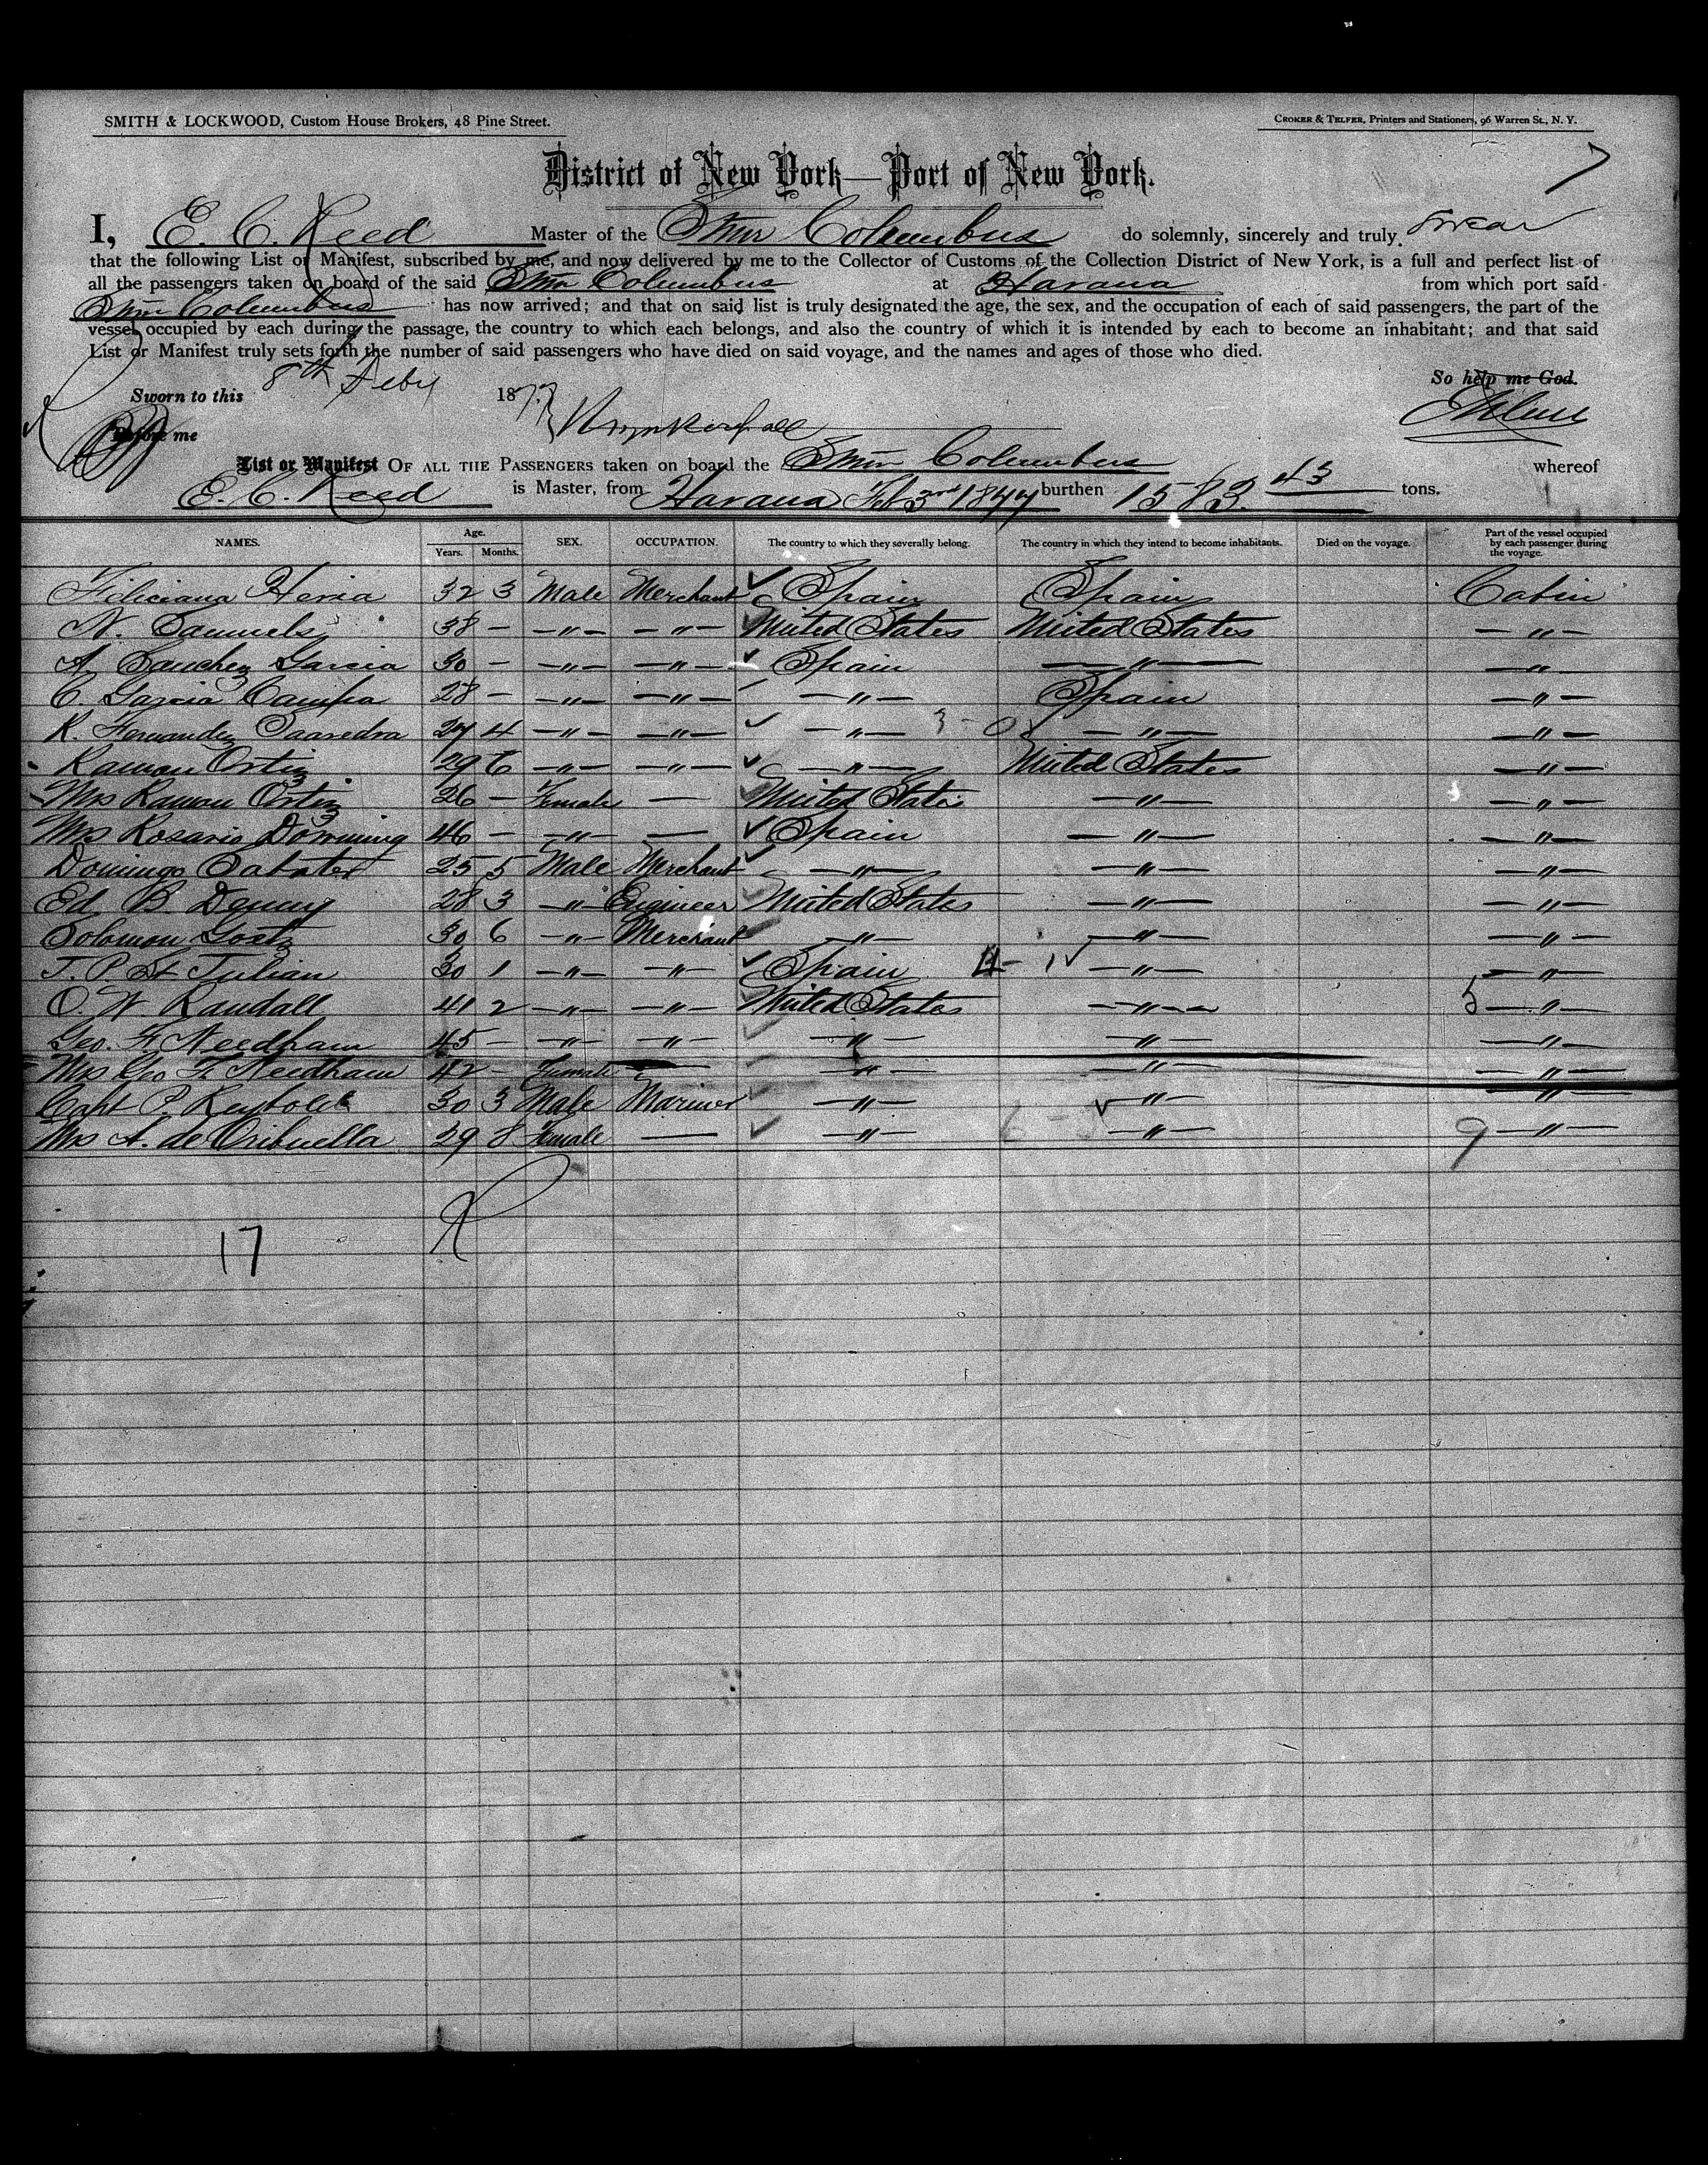 SMITH & LOCKWOOD, Custom House Brokers, 48 Pine Street.
CROKER & TELFER, Printers and Stationers, 96 Warren St., N. Y.
District of New York—Port of New York.
I, E. C. Reed Master of the Stmr Columbus do solemnly, sincerely and truly swear
that the following List or Manifest, subscribed by me, and now delivered by me to the Collector of Customs of the Collection District of New York, is a full and perfect list of
all the passengers taken on board of the said Stmr Columbus at Havana from which port said
Stmr Columbus has now arrived; and that on said list is truly designated the age, the sex, and the occupation of each of said passengers, the part of the
vessel occupied by each during the passage, the country to which each belongs, and also the country of which it is intended by each to become an inhabitant; and that said
List or Manifest truly sets forth the number of said passengers who have died on said voyage, and the names and ages of those who died.
So help me God.
Sworn to this 8th Feby 1877
Before me
List or Manifest OF ALL THE PASSENGERS taken on board the Stmr Columbus whereof
E. C. Reed is Master, from Havana Feb 3rd 1877 burthen 1583 43 tons.
NAMES. Age. Years. Months. SEX. OCCUPATION. The country to which they severally belong. The country in which they intend to become inhabitants. Died on the voyage. Part of the vessel occupied by each passenger during the voyage.
Feliciana Heria 32 3 Male Merchant ✓ Spain Spain Cabin
N. Samuels 38 - -"- -"- United States United States -"-
A. Sanchez Garcia 30 - -"- -"- ✓ Spain -"- -"-
C. Garcia Campa 28 - -"- -"- -"- Spain -"-
R. Fernandez Saavedra 27 4 -"- -"- ✓ -"- 3 - 0 ✓ -"- -"-
Ramon Ortiz 29 6 -"- -"- ✓ -"- United States -"-
Mrs Ramon Ortiz 26 - Female — United States -"- -"-
Mrs Rosario Downing 46 - -"- — ✓ Spain -"- -"-
Domingo Sabater 25 5 Male Merchant ✓ -"- -"- -"-
Ed. B. Denny 28 3 -"- Engineer United States -"- -"-
Solomon Goetz 30 6 -"- Merchant ✓ -"- -"- -"-
J. P. St Julian 30 1 -"- -"- ✓ Spain 4 - 1 ✓ -"- -"-
O. W. Randall 41 2 -"- -"- United States -"- 5 -"-
Geo. F. Needham 45 - -"- -"- ✓ -"- -"- -"-
Mrs Geo F. Needham 42 - Female — ✓ -"- -"- -"-
Capt P. 30 3 Male Mariner ✓ -"- ✓ -"- -"-
Mrs A. de 29 8 Female — ✓ -"- -"- 9 -"-
17